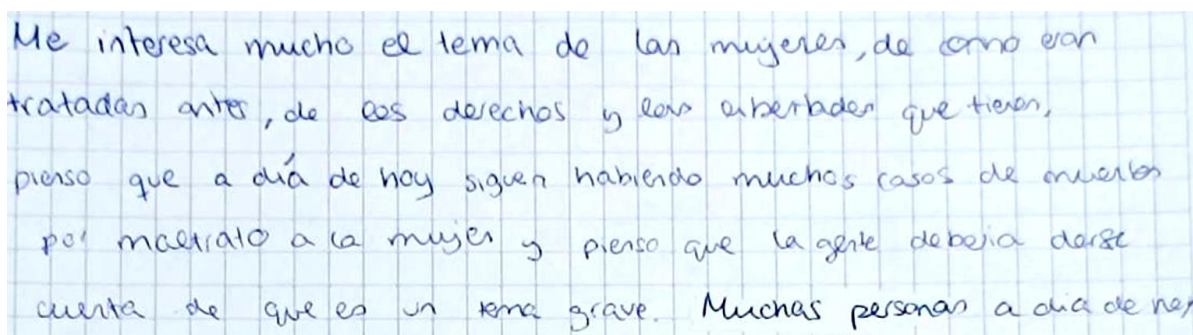 Me interesa mucho el tema de las mujeres, de como eran
tratadas antes, de los derechos y las libertades que tienen,
pienso que a día de hoy siguen habiendo muchos casos de muertes
por maltrato a la mujer y pienso que la gente deberia darse
cuenta de que es un tema grave. Muchas personas a dia de hoy